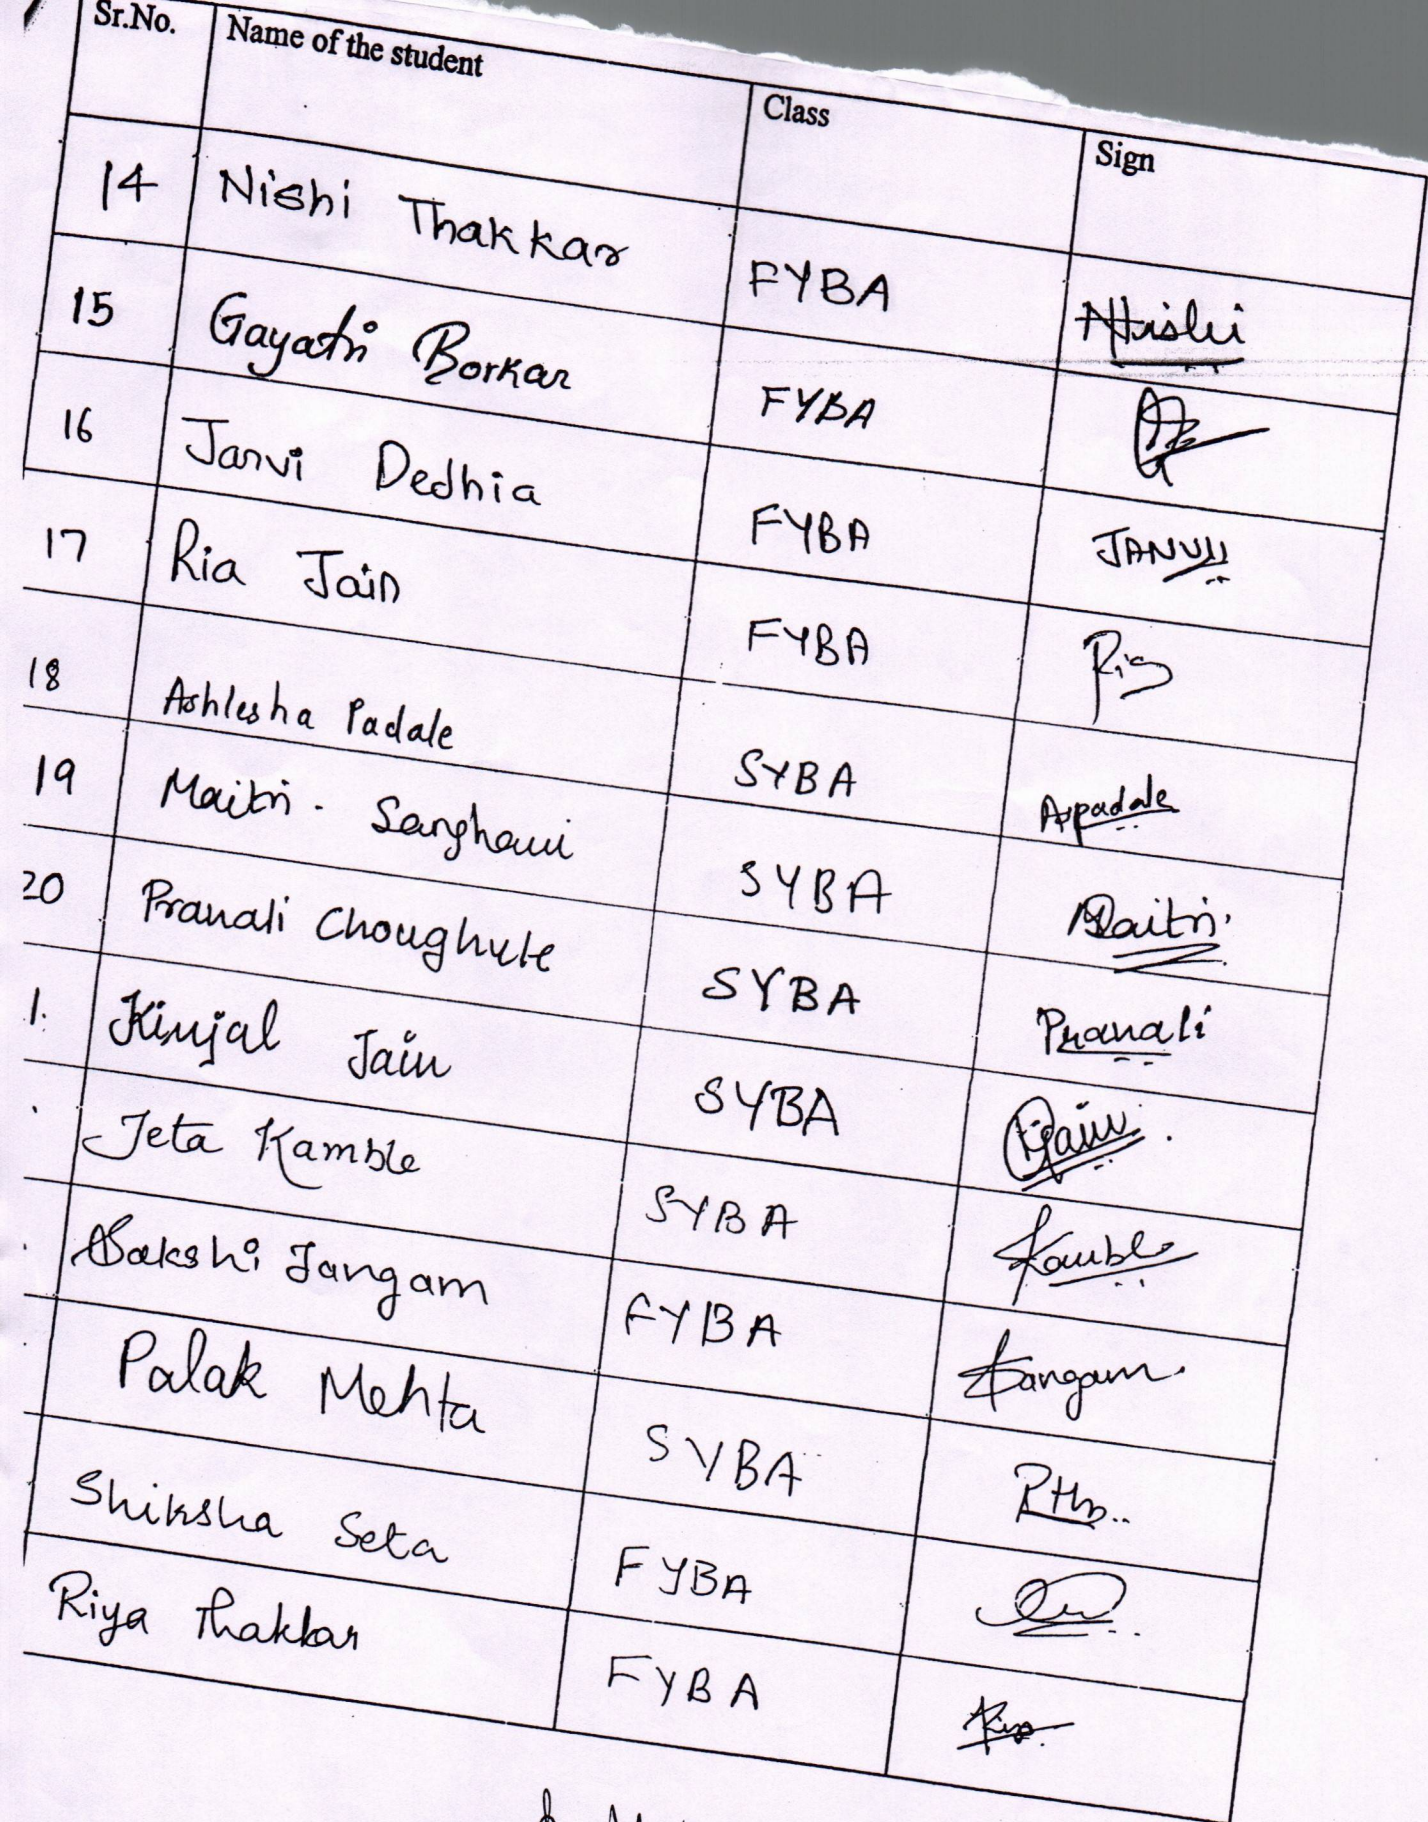 Sr.No. Name of the student Class Sign
14 Nishi Thakkar FYBA Nishi
15 Gayatri Borkar FYBA
16 Janvi Dedhia FYBA JANVII
17 Ria Jain FYBA Ria
18 Ashlesha Padale SYBA Aspadale
19 Maitri. Sanghavi SYBA Maitri.
20 Pranali Choughule SYBA Pranali
1. Kinjal Jain SYBA KJain
Jeta Kamble SYBA Kamble
Sakshi Jangam FYBA Jangam.
Palak Mehta SYBA
Shiksha Seta FYBA
Riya Thakkar FYBA Riya